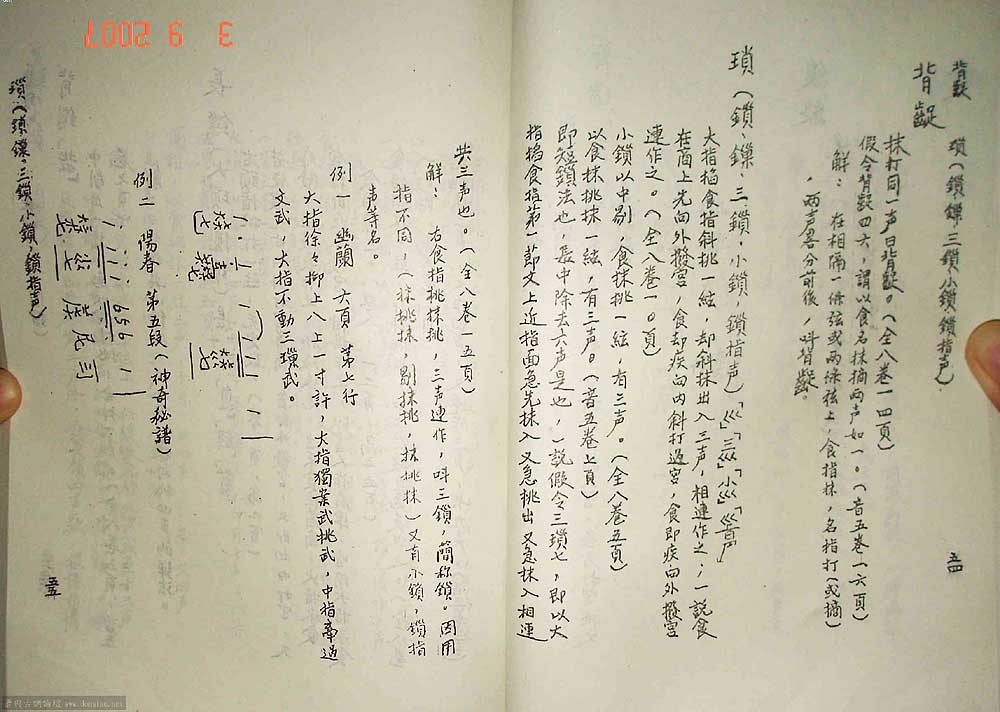 背齪
瑣(鎖、鏁、三鎖、小鎖、鎖指声)
五四
背齪
抹打同一声曰背齪。(全八卷一四頁)
假令背齪四六,謂以食名抹摘两声如一。(音五卷一六頁)
解:在相隔一条弦或两条弦上,食指抹,名指打(或摘)
,两声异分前後,叫背齪。
瑣(鎖、鏁、三鎖、小鎖、鎖指声)
大指掐食指斜挑一絃,却斜抹出入三声,相連作之,一説食
在商上先向外撥宮,食却疾向内斜打過宮,食即疾向外撥宮
連作之。(全八卷一〇頁)
小鎖以中剔,食抹挑一絃,有三声。(全八卷五頁)
以食抹挑抹一絃,有三声。(音五卷七頁)
即短鎖法也,長中除去六声是也,一説假令三瑣七,即以大
指掐食指第一節文上近指面急先抹入又急挑出又急抹入相連
共三声也。(全八卷一五頁)
解:右食指挑抹挑,三声連作,叫三鎖,簡称鎖。因用
指不同,(抹挑抹,剔抹挑,抹挑抹)又有小鎖,鎖指
声等名。
例一 幽蘭 六頁 第七行
大指徐々抑上八上一寸許,大指獨案武挑武,中指帝過
文武,大指不動三瑣武。
例二 陽春 第五段(神奇秘譜)
656
五五
瑣(鎖、鏁、三鎖、小鎖、鎖指声)
3 9 2007
www.donstac.net